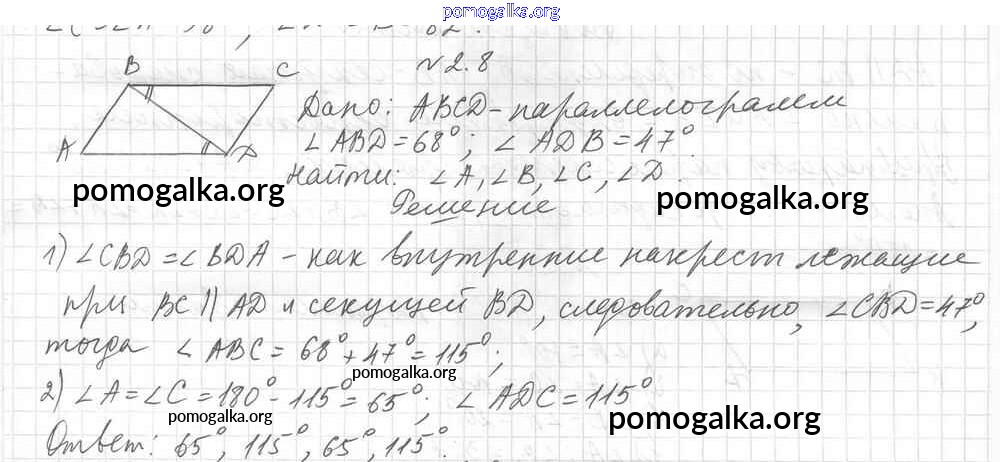 pomogalka.org
№2.8
B C
Дано: ABCD - параллелограмм
∠ABD = 68°; ∠ADB = 47°
A D
Найти: ∠A, ∠B, ∠C, ∠D.
pomogalka.org pomogalka.org
Решение
1) ∠CBD = ∠BDA - как внутренние накрест лежащие
при BC || AD и секущей BD, следовательно, ∠CBD = 47°,
тогда ∠ABC = 68° + 47° = 115°;
pomogalka.org
2) ∠A = ∠C = 180° - 115° = 65°; ∠ADC = 115°
pomogalka.org pomogalka.org
Ответ: 65°, 115°, 65°, 115°.